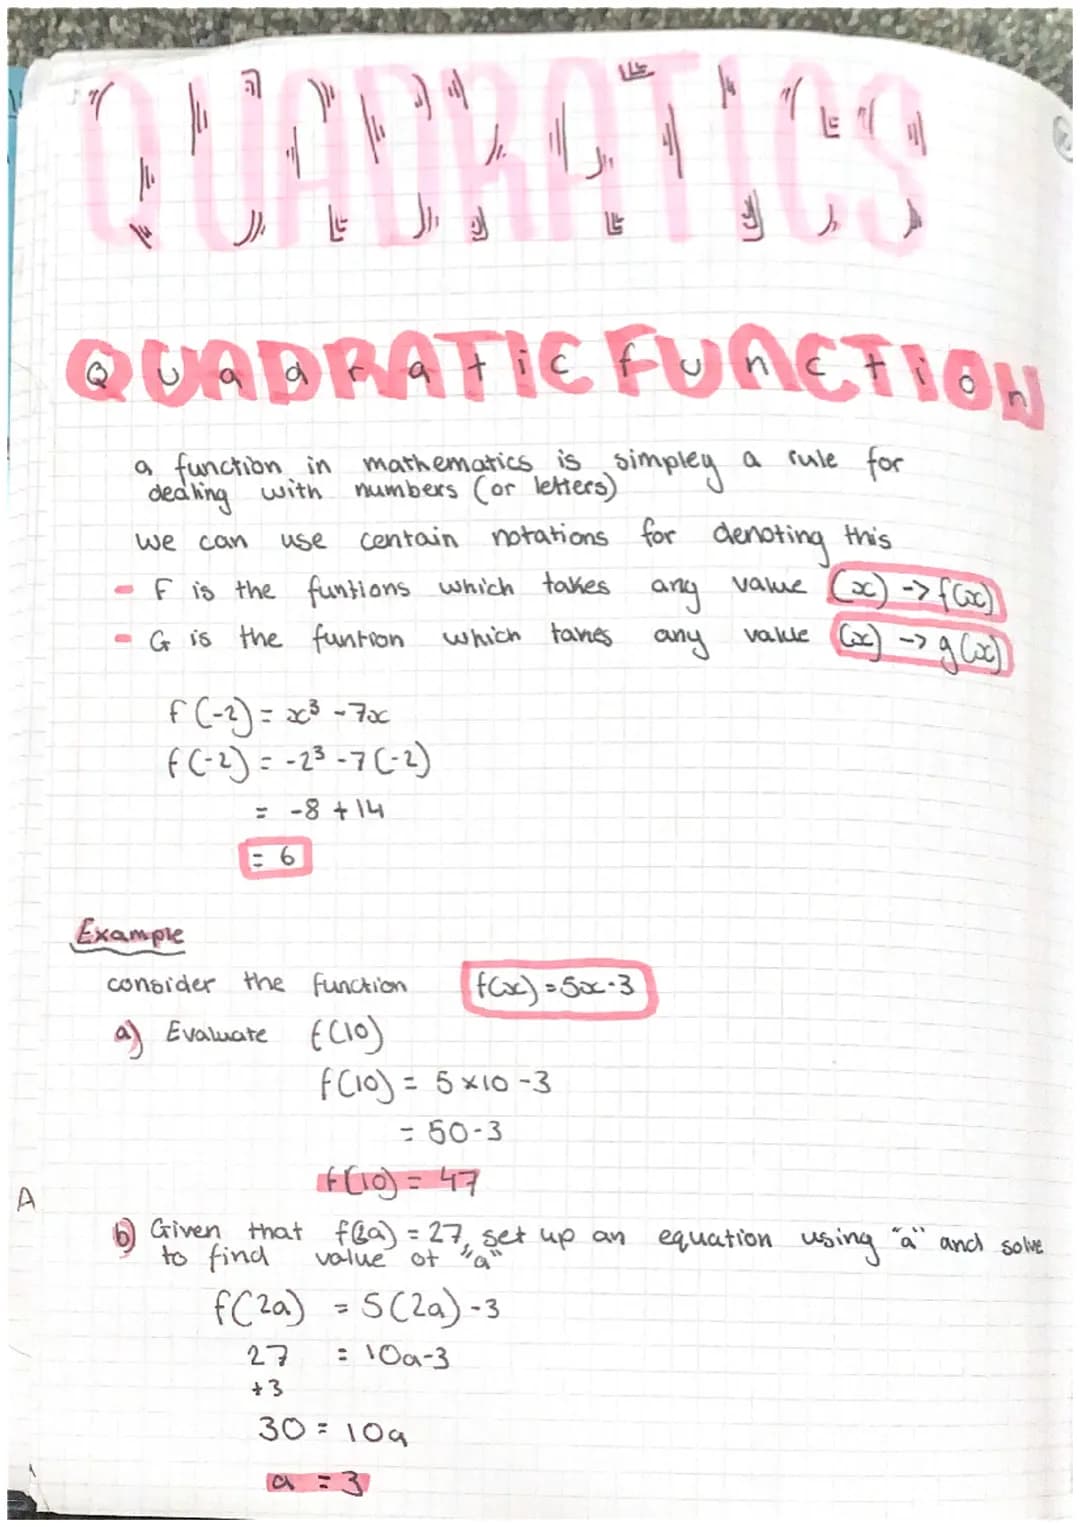 QUADRATICS
Quadratic function
a function in mathematics is simpley a rule for
dealing with numbers (or letters)
we can use centain notations for denoting this
- F is the funtions which takes any value (x) -> f(x)
- G is the funtion which takes any value (x) -> g(x)
f(-2) = x³ - 7x
f(-2) = -2³ - 7(-2)
= -8 + 14
= 6
Example
consider the function f(x) = 5x-3
a) Evaluate f(10)
f(10) = 5 x 10 - 3
= 50 - 3
f(10) = 47
A
b) Given that f(2a) = 27, set up an equation using "a" and solve
to find value of "a"
f(2a) = 5(2a) - 3
27 = 10a-3
+3
30 = 10a
a = 3